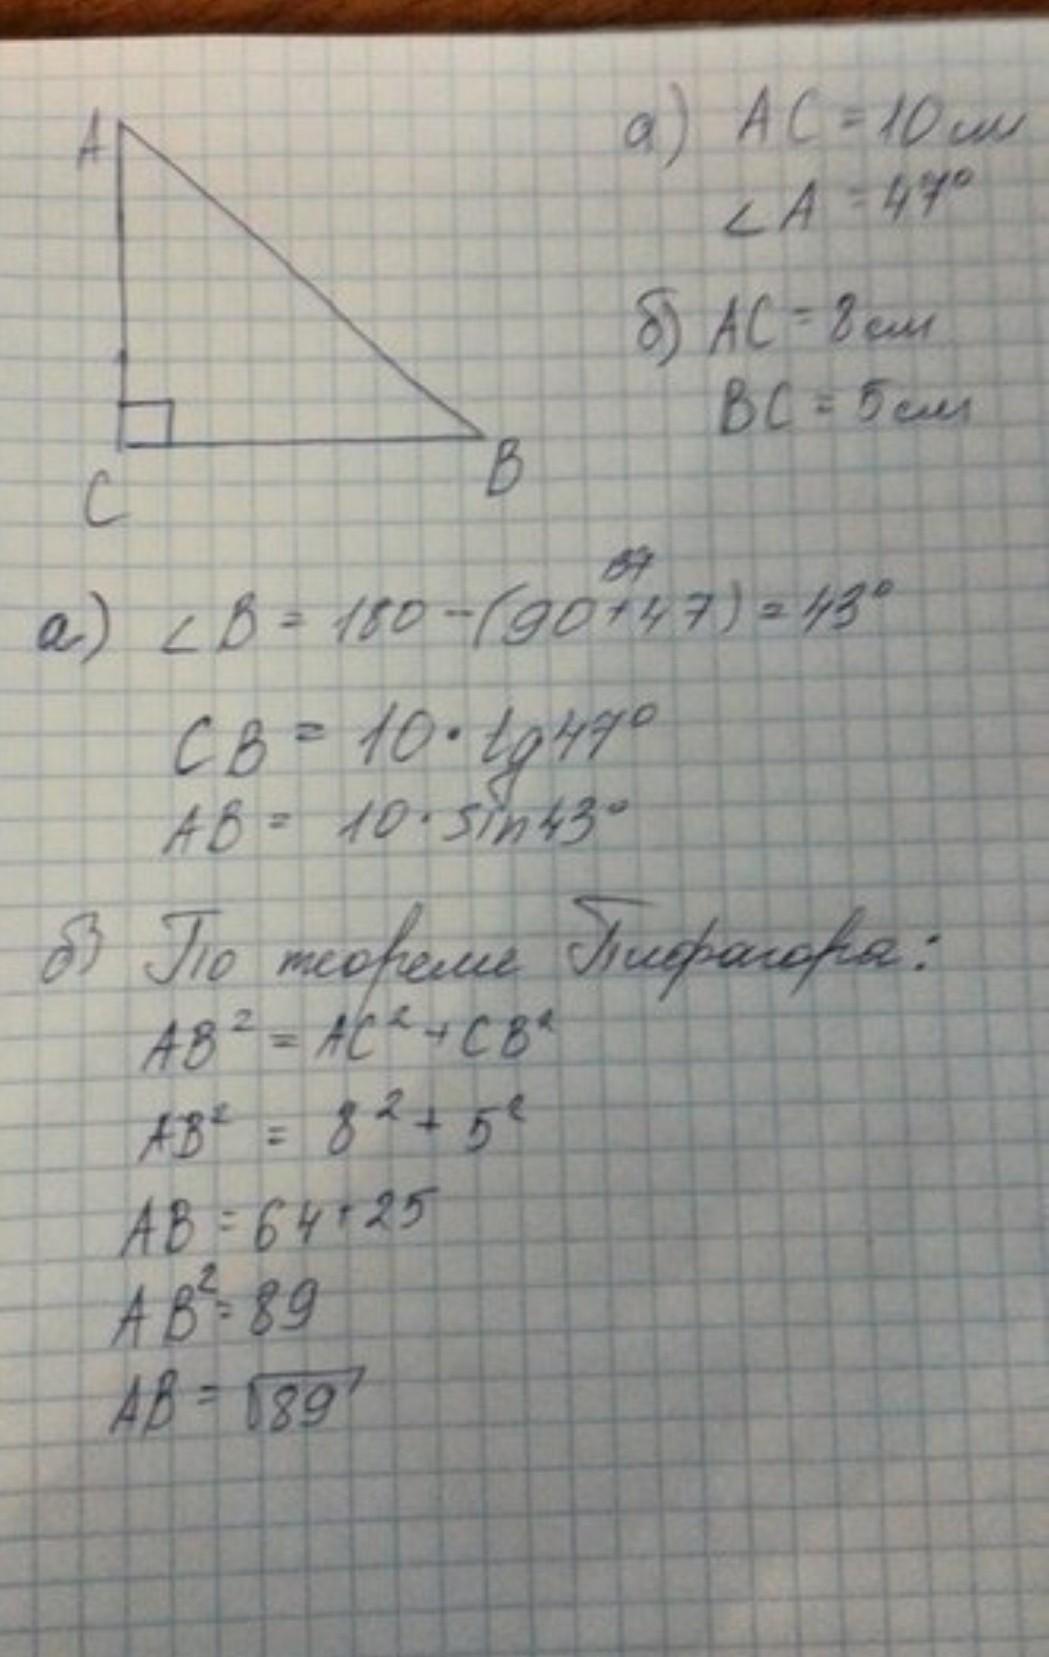 A
C
B
а) AC = 10 см
∠A = 47°
б) AC = 8 см
BC = 5 см
137
а) ∠B = 180 - (90 + 47) = 43°
CB = 10 · tg 47°
AB = 10 · sin 43°
б) По теореме Пифагора:
AB² = AC² + CB²
AB² = 8² + 5²
AB = 64 + 25
AB² = 89
AB = √89